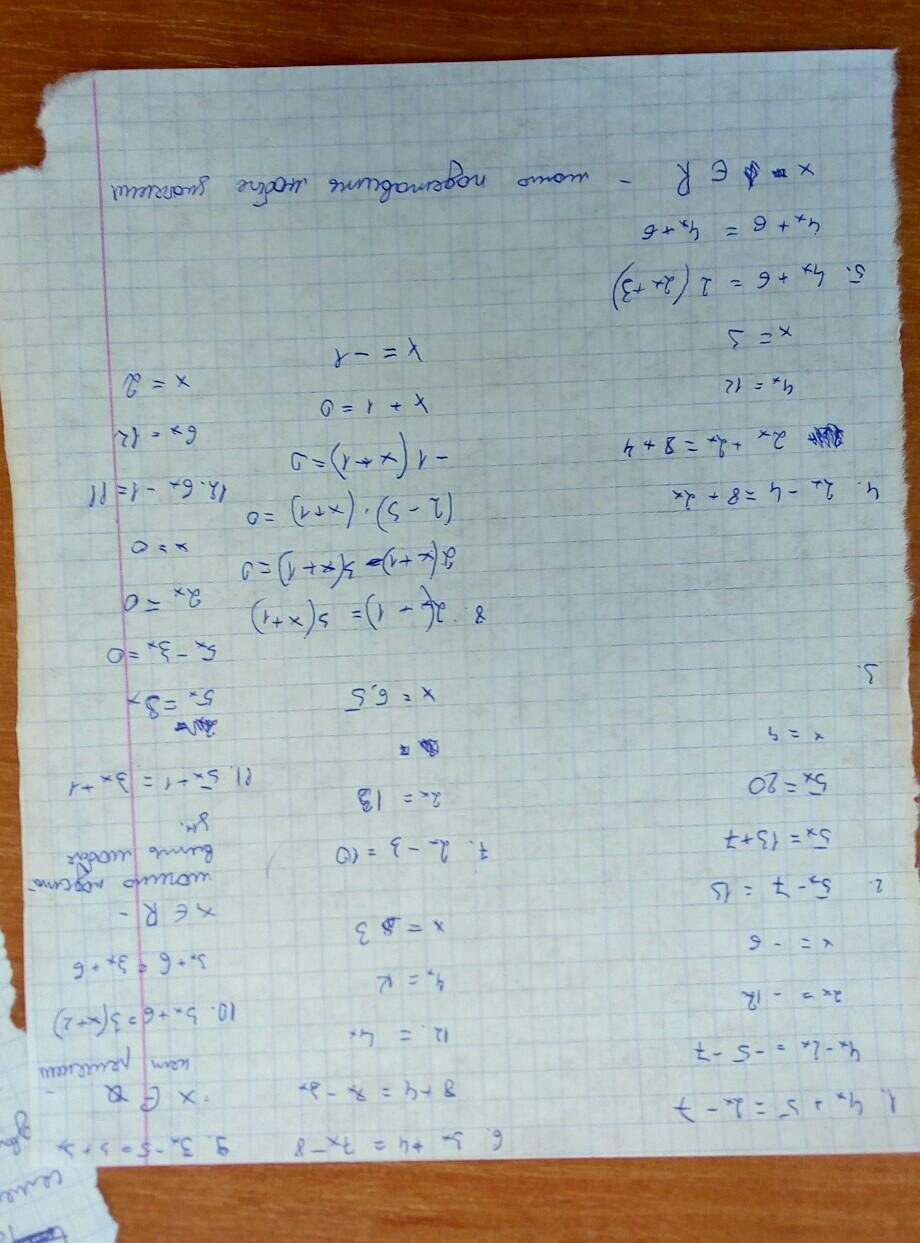 1. 4x + 5 = 2x - 7
4x - 2x = -5 - 7
2x = - 12
x = - 6
2. 5x - 7 = 13
5x = 13 + 7
5x = 20
x = 4
3.
4. 2x - 4 = 8 + 2x
2x + 2x = 8 + 4
4x = 12
x = 3
5. 4x + 6 = 2(2x+3)
4x + 6 = 4x + 6
x ∈ R - можно подставить любые
6. 3x + 4 = 7x - 8
8 + 4 = 7x - 3x
12 = 4x
4x = 12
x = 3
7. 2x - 3 = 10
2x = 13
x = 6,5
8. 2(x + 1) = 3(x+1)
2(x+1) - 3(x+1) = 0
(2-3) · (x+1) = 0
-1(x+1) = 0
x + 1 = 0
x = -1
9. 3x - 5 = 3 + 3x
нет решений
10. 3x + 6 = 3(x+2)
3x + 6 = 3x + 6
x ∈ R -
можно подста-
вить любое
11. 5x + 1 = 3x + 1
5x = 3x
5x - 3x = 0
2x = 0
x = 0
12. 6x - 1 = 11
6x = 12
x = 2